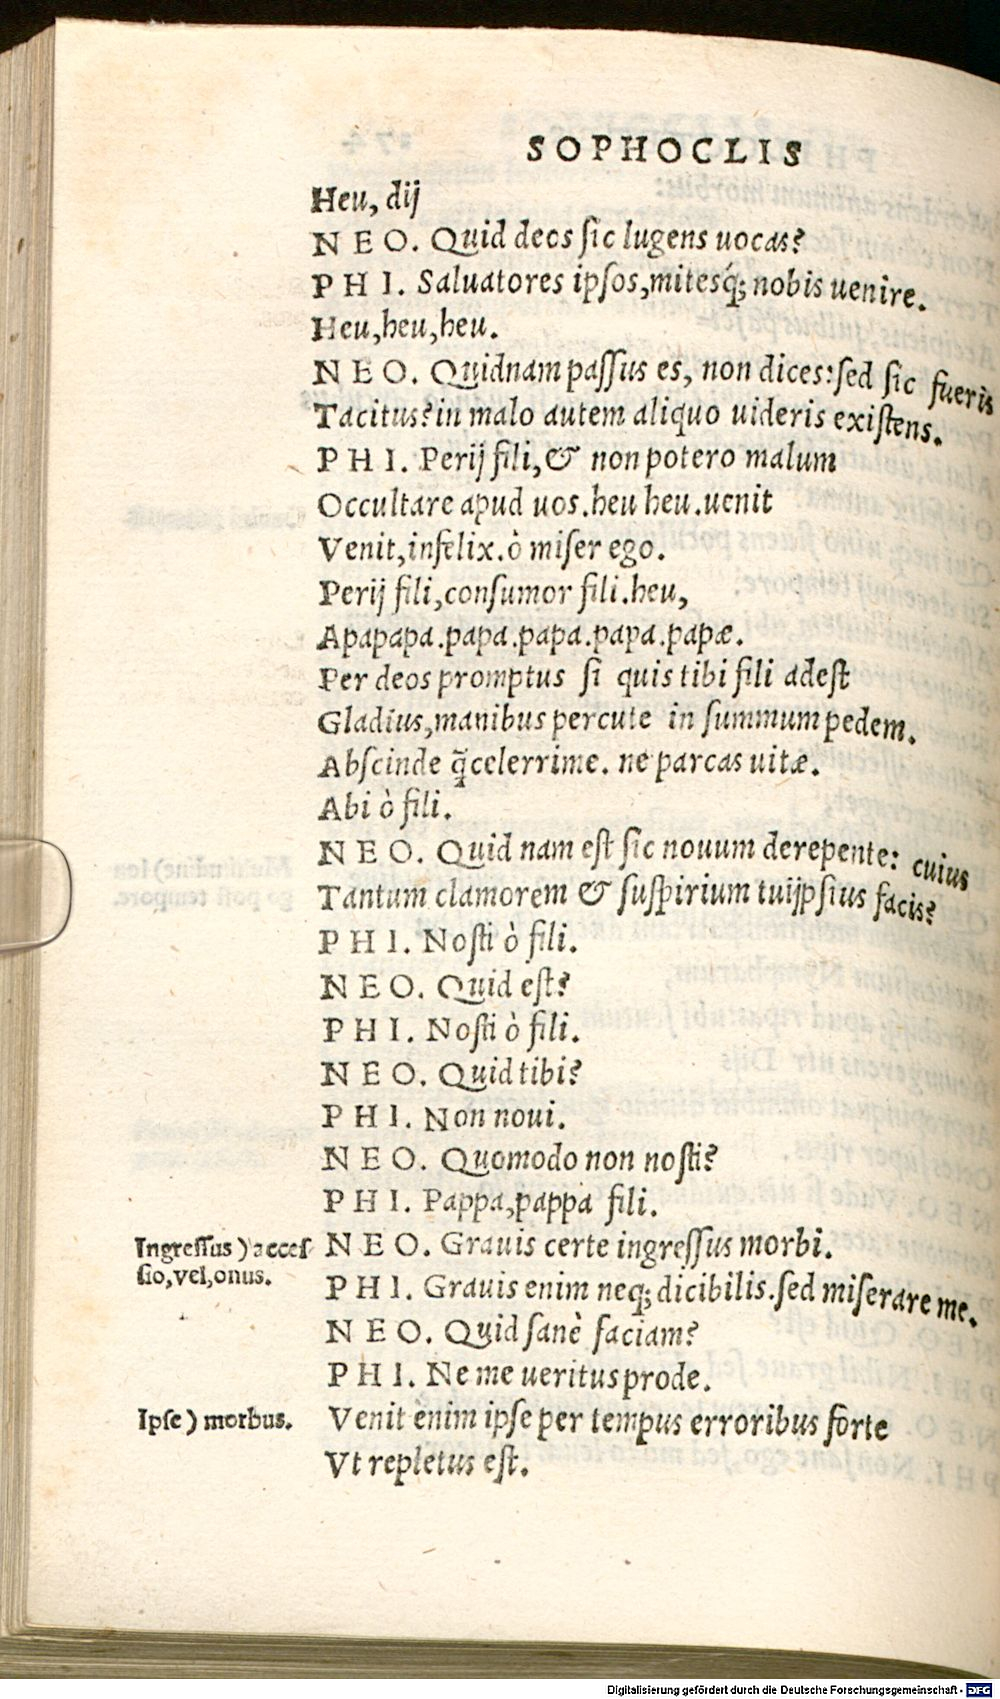 SOPHOCLIS
Heu, dij
NEO. Quid deos ſic lugens uocas?
PHI. Saluatores ipſos,mitesq́; nobis uenire.
Heu,heu,heu.
NEO. Quidnam paſſus es, non dices:ſed ſic fueris
Tacitus?in malo autem aliquo uideris exiſtens.
PHI. Perij fili,& non potero malum
Occultare apud uos.heu heu.uenit
Venit,infelix.ò miſer ego.
Perij fili,conſumor fili.heu,
Apapapa.papa.papa.papa.papæ.
Per deos promptus ſi quis tibi fili adeſt
Gladius,manibus percute in ſummum pedem.
Abſcinde q̃celerrime. ne parcas uitæ.
Abi ò fili.
NEO. Quid nam eſt ſic nouum derepente: cuius
Tantum clamorem & ſuſpirium tuijpſius facis?
PHI. Noſti ò fili.
NEO. Quid eſt?
PHI. Noſti ò fili.
NEO. Quid tibi?
PHI. Non noui.
NEO. Quomodo non noſti?
PHI. Pappa,pappa fili.
Ingreſſus ) acceſ
ſio,vel,onus.
NEO. Grauis certe ingreſſus morbi.
PHI. Grauis enim neq; dicibilis.ſed miſerare me.
NEO. Quid ſanè faciam?
PHI. Ne me ueritus prode.
Ipſe ) morbus.
Venit enim ipſe per tempus erroribus forte
Vt repletus eſt.
Digitalisierung gefördert durch die Deutsche Forschungsgemeinschaft - DFG